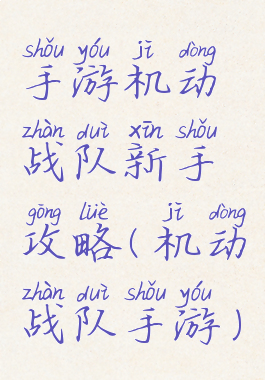 shǒu yóu jī dòng
手游机动
zhàn duì xīn shǒu
战队新手
gōng lüè jī dòng
攻略(机动
zhàn duì shǒu yóu
战队手游)